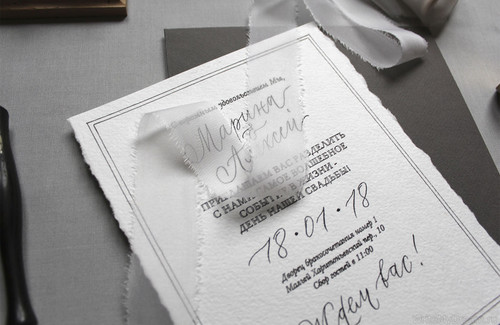 С безграничным удовольствием Мы,
Марина
&
Алексей
ПРИГЛАШАЕМ ВАС РАЗДЕЛИТЬ
С НАМИ САМОЕ ВОЛШЕБНОЕ
СОБЫТИЕ В ЖИЗНИ -
ДЕНЬ НАШЕЙ СВАДЬБЫ!
18•01•18
Дворец бракосочетания номер 1
Малый Харитоньевский пер., 10
Сбор гостей в 11:00
Ждем вас!